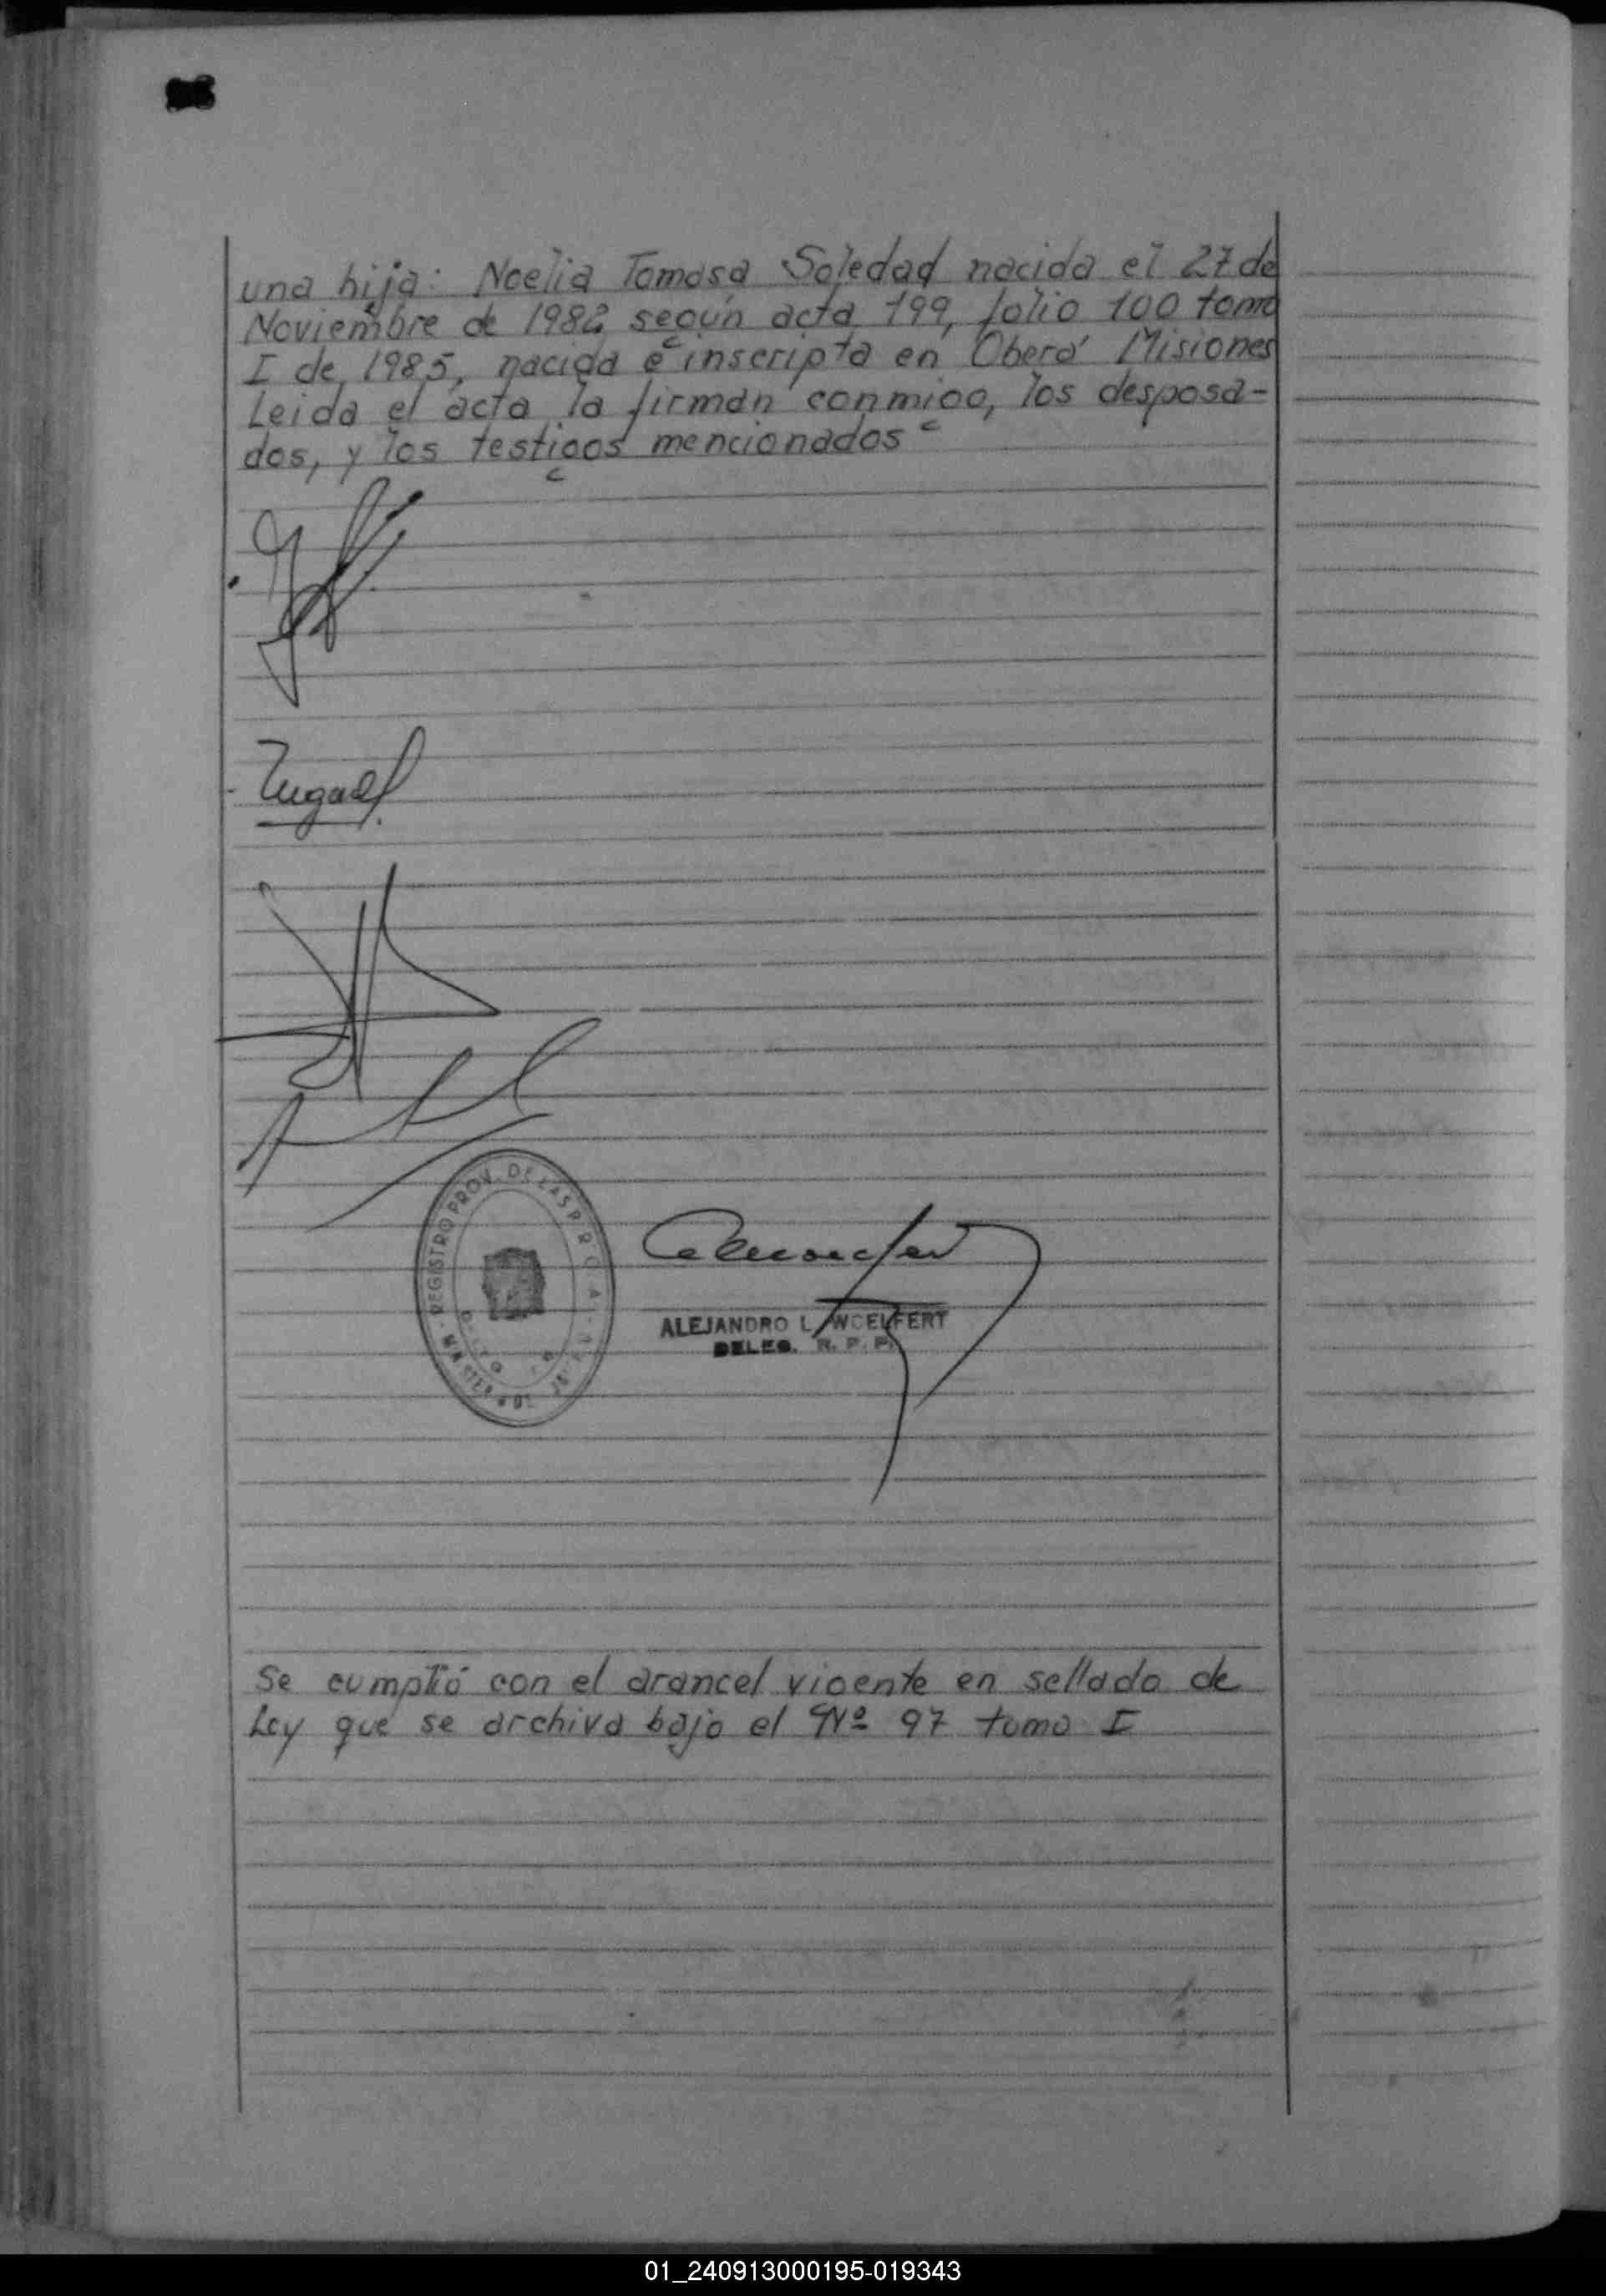 una hija: Noelia Tomasa Soledad nacida el 27 de
Noviembre de 1982 según acta 199, folio 100 tomo
I de 1985, nacida e inscripta en Oberá Misiones
Leida el acta la firman conmigo, los desposa-
dos, y los testigos mencionados
REGISTRO PROV. DE LAS P.
ALEJANDRO L. WOELFERT
DELEG. R. P. P.
Se cumplió con el arancel vigente en sellado de
Ley que se archiva bajo el Nº 97 tomo I
01_240913000195-019343